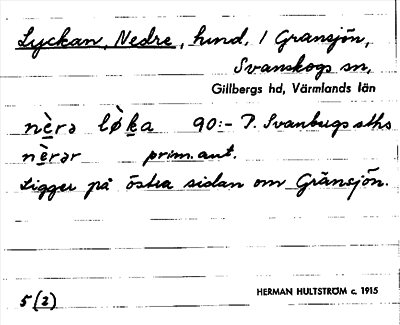 Lyckan, Nedre, hmd, i Gransjön,
Svanskogs sn,
Gillbergs hd, Värmlands län
nè̱rə lø̀k̠a 90:- T. Svanbergs sths
nè̱rər prim. ant.
Ligger på östra sidan om Gränsjön.
5 (2)
HERMAN HULTSTRÖM c. 1915